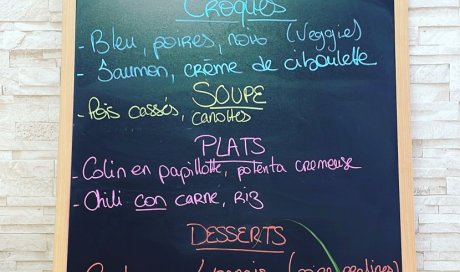 Croques
- Bleu, poires, noix (Veggie)
- Saumon, crème de ciboulette
SOUPE
- Pois cassés, carottes
PLATS
- Colin en papillotte, polenta cremeuse
- Chili con carne, RIZ
DESSERTS